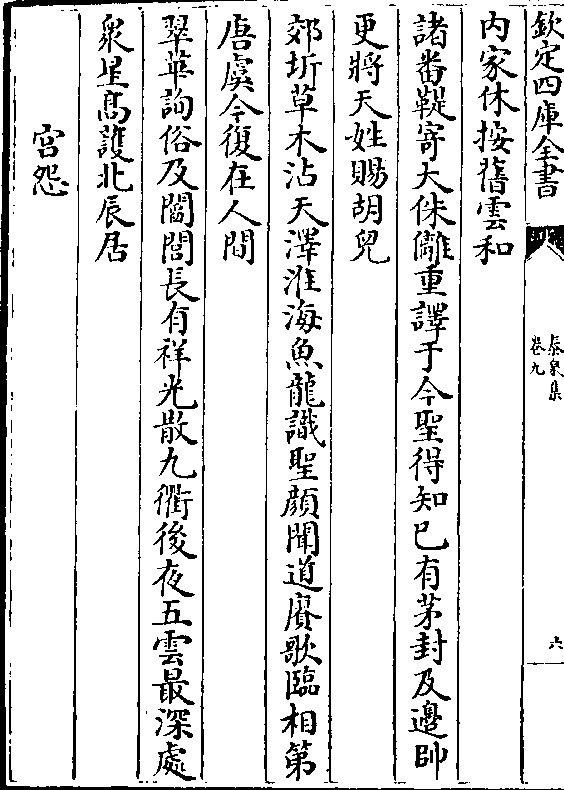 欽定四庫全書
泰泉集
卷九
六
内家休按舊雲和
諸番鞮寄大侏離重譯于今聖得知已有茅封及邊帥
更將天姓賜胡兒
郊圻草木沾天澤淮海魚龍識聖顔聞道賡歌臨相第
唐虞今復在人間
翠華詢俗及閭閻長有祥光散九衢後夜五雲最深處
衆星髙護北辰居
宫怨